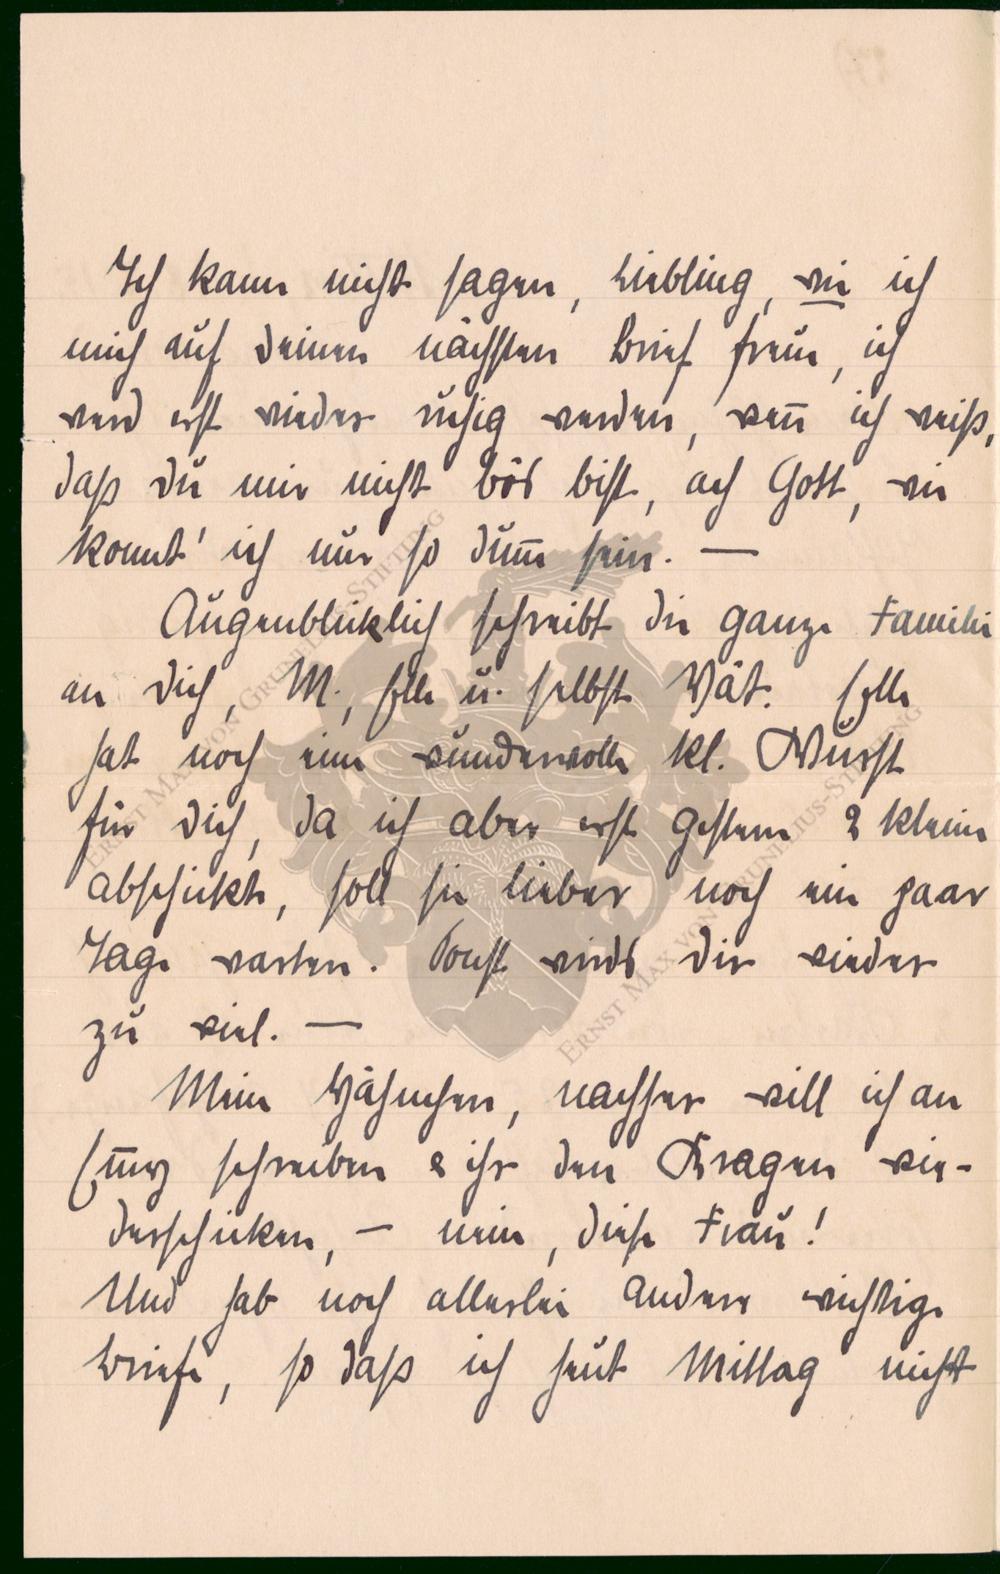 Ich kann nicht sagen, Liebling, wie ich
mich auf deinen nächsten Brief freue, ich
werd erst wieder ruhig werden, wenn ich weiß,
daß du mir nicht bös bist, ach Gott, wie
konnt' ich nur so dumm sein. —
Augenblicklich schreibt die ganze Familie
an dich, M., Elle u. selbst Vät. Elle
hat noch eine wundervolle kl. Wurst
für dich, da ich aber erst gestern 2 kleine
abschickte, soll sie lieber noch ein paar
Tage warten. Sonst wirds dir wieder
zu viel. —
Mein, nachher will ich an
Emmy schreiben & ihr den Kragen wie-
derschicken, — nein, diese Frau!
Und hab noch allerlei andere wichtige
Briefe, so daß ich heut Mittag nicht
ERNST MAX VON GRUNELIUS-STIFTUNG
ERNST MAX VON GRUNELIUS-STIFTUNG